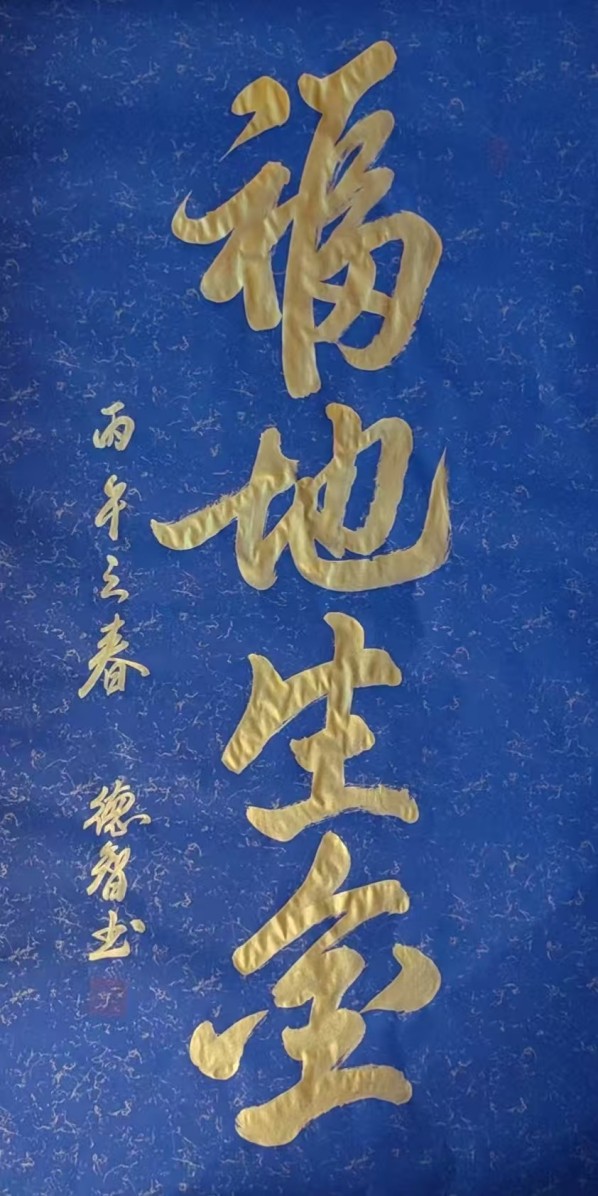 福地生金
丙午之春
德智书